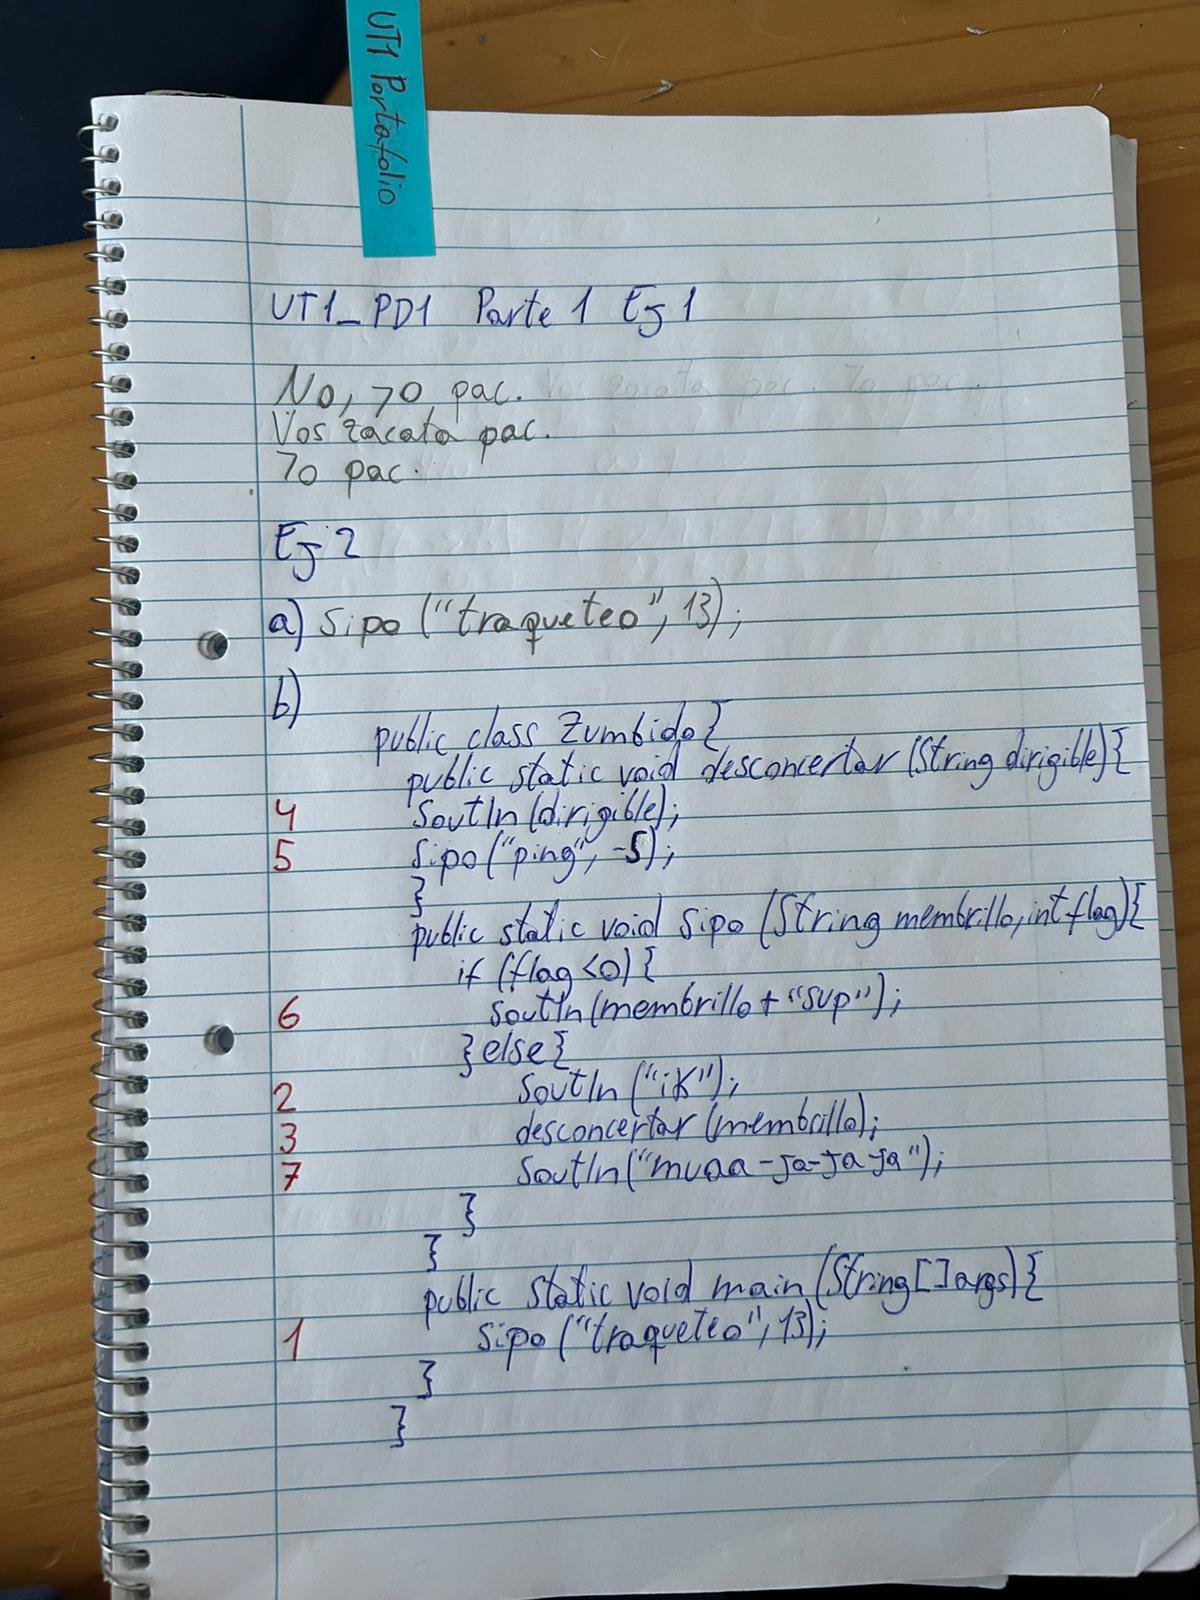 UT1 Portafolio
UT1_PD1 Parte 1 Ej 1
No, yo pac.
Vos zacata pac.
Yo pac.
Ej 2
a) Sipo ("traqueteo", 13);
b)
public class Zumbido {
public static void desconcertar (String dirigible) {
4 Soutln (dirigible);
5 Sipo ("ping", -5);
}
public static void Sipo (String membrillo, int flag) {
if (flag <0) {
6 Soutln (membrillo + "sup");
} else {
2 Soutln ("ik");
3 desconcertar (membrillo);
7 Soutln ("muaa-ja-ja-ja");
}
}
public static void main (String [] args) {
1 Sipo ("traqueteo", 13);
}
}